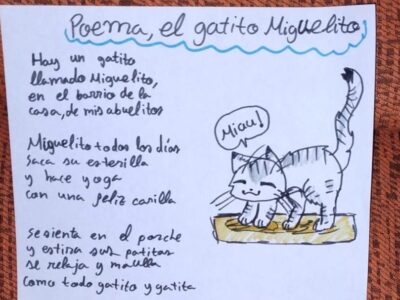 Poema, el gatito Miguelito
Hay un gatito
llamado Miguelito,
en el barrio de la
casa, de mis abuelitos
Miau!
Miguelito todos los días
saca su esterilla
y hace yoga
con una feliz carilla
se sienta en el porche
y estira sus patitas
se relaja y maulla
como todo gatito y gatita